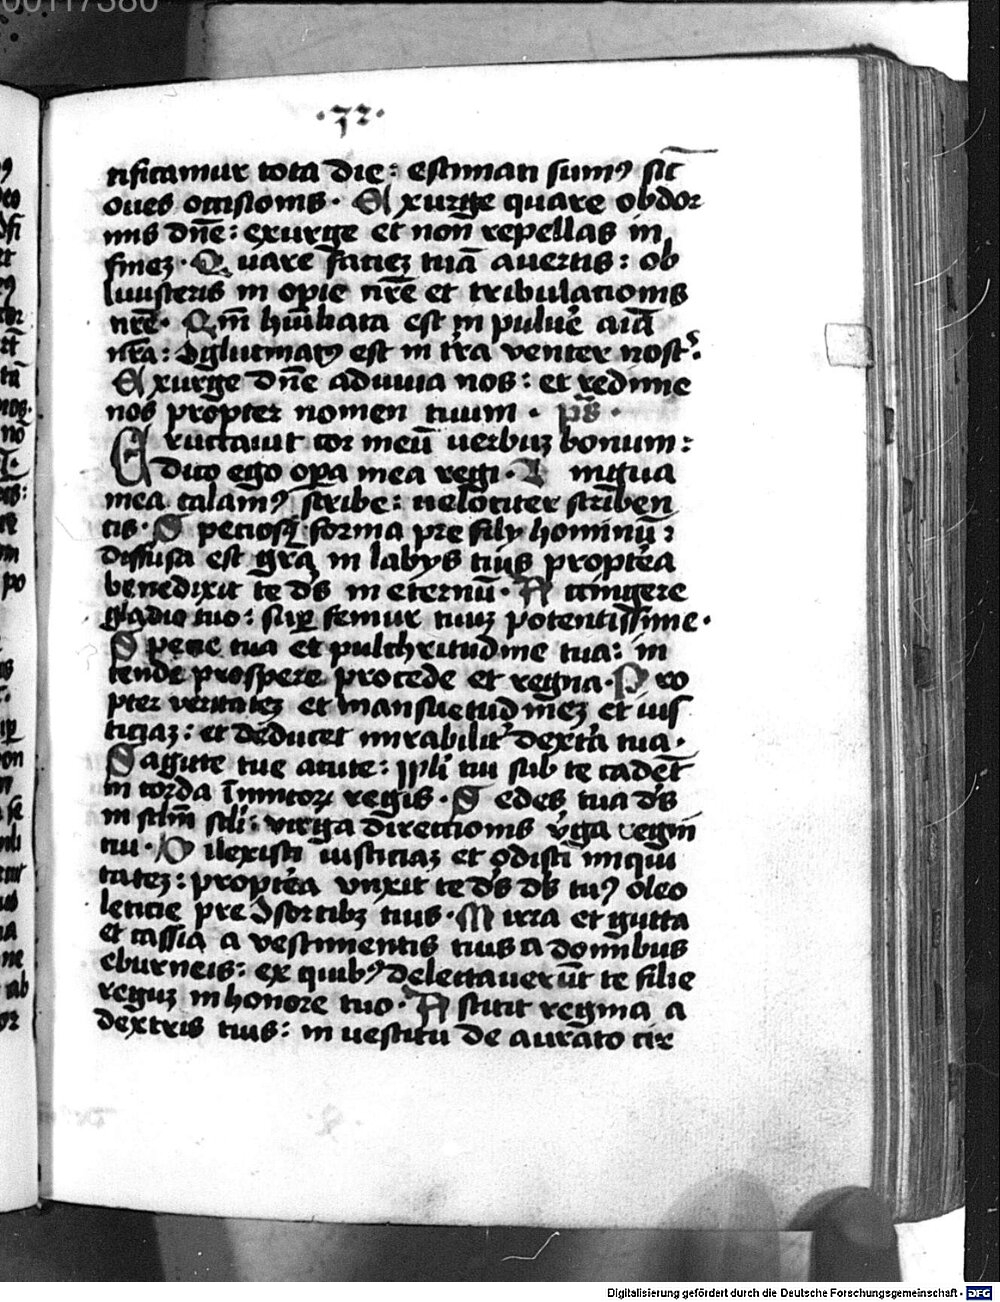 00117380
·32·
tificamur tota die: estimati sumꝰ sic̄
oues occisionis. Exurge quare obdor
mis dn̄e: exurge et non̄ repellas in
finez. Quare faciez tuā auertis: ob
liuisceris in opie nr̄e et tribulationis
nr̄e. Qm̄ hūiliata est in puluē aīa
nr̄a: ↄglutinatꝰ est in tr̄a venter nost͛.
Exurge dn̄e adiuua nos: et redime
nos propter nomen tuum. ps̄.
Eructauit cor meū uerbuz bonum:
dico ego oꝑa mea regi. Lingua
mea calamꝰ scribe: uelociter scriben
tis. Speciosꝰ forma pre filijs hominū:
diffusa est grā in labijs tuis proptea
benedixit te ds̄ in eternū. Accingere
gladio tuo: suꝑ femur tuuz potentissime.
Specie tua et pulchritudine tua: in
tende prospere procede et regna. Pro
pter veritatez et mansuetudinez et ius
ticiaz: et deducet mirabilit͛ dextra tua.
Sagitte tue acute: ppli tui sub te cadēt
in corda inimicoꝝ regis. Sedes tua ds̄
in sclm̄ scli: virga directionis v̄ga regni
tui. Dilexisti iusticiaz et odisti iniqui
tatez: proptea vnxit te ds̄ ds̄ tuꝰ oleo
leticie pre ↄsortibꝫ tuis. Mirra et gutta
et cassia a vestimentis tuis a domibus
eburneis: ex quibꝰ delectauerūt te filie
reguz in honore tuo. Astitit regina a
dextris tuis: in uestitu de aurato cir
Digitalisierung gefördert durch die Deutsche Forschungsgemeinschaft - DFG